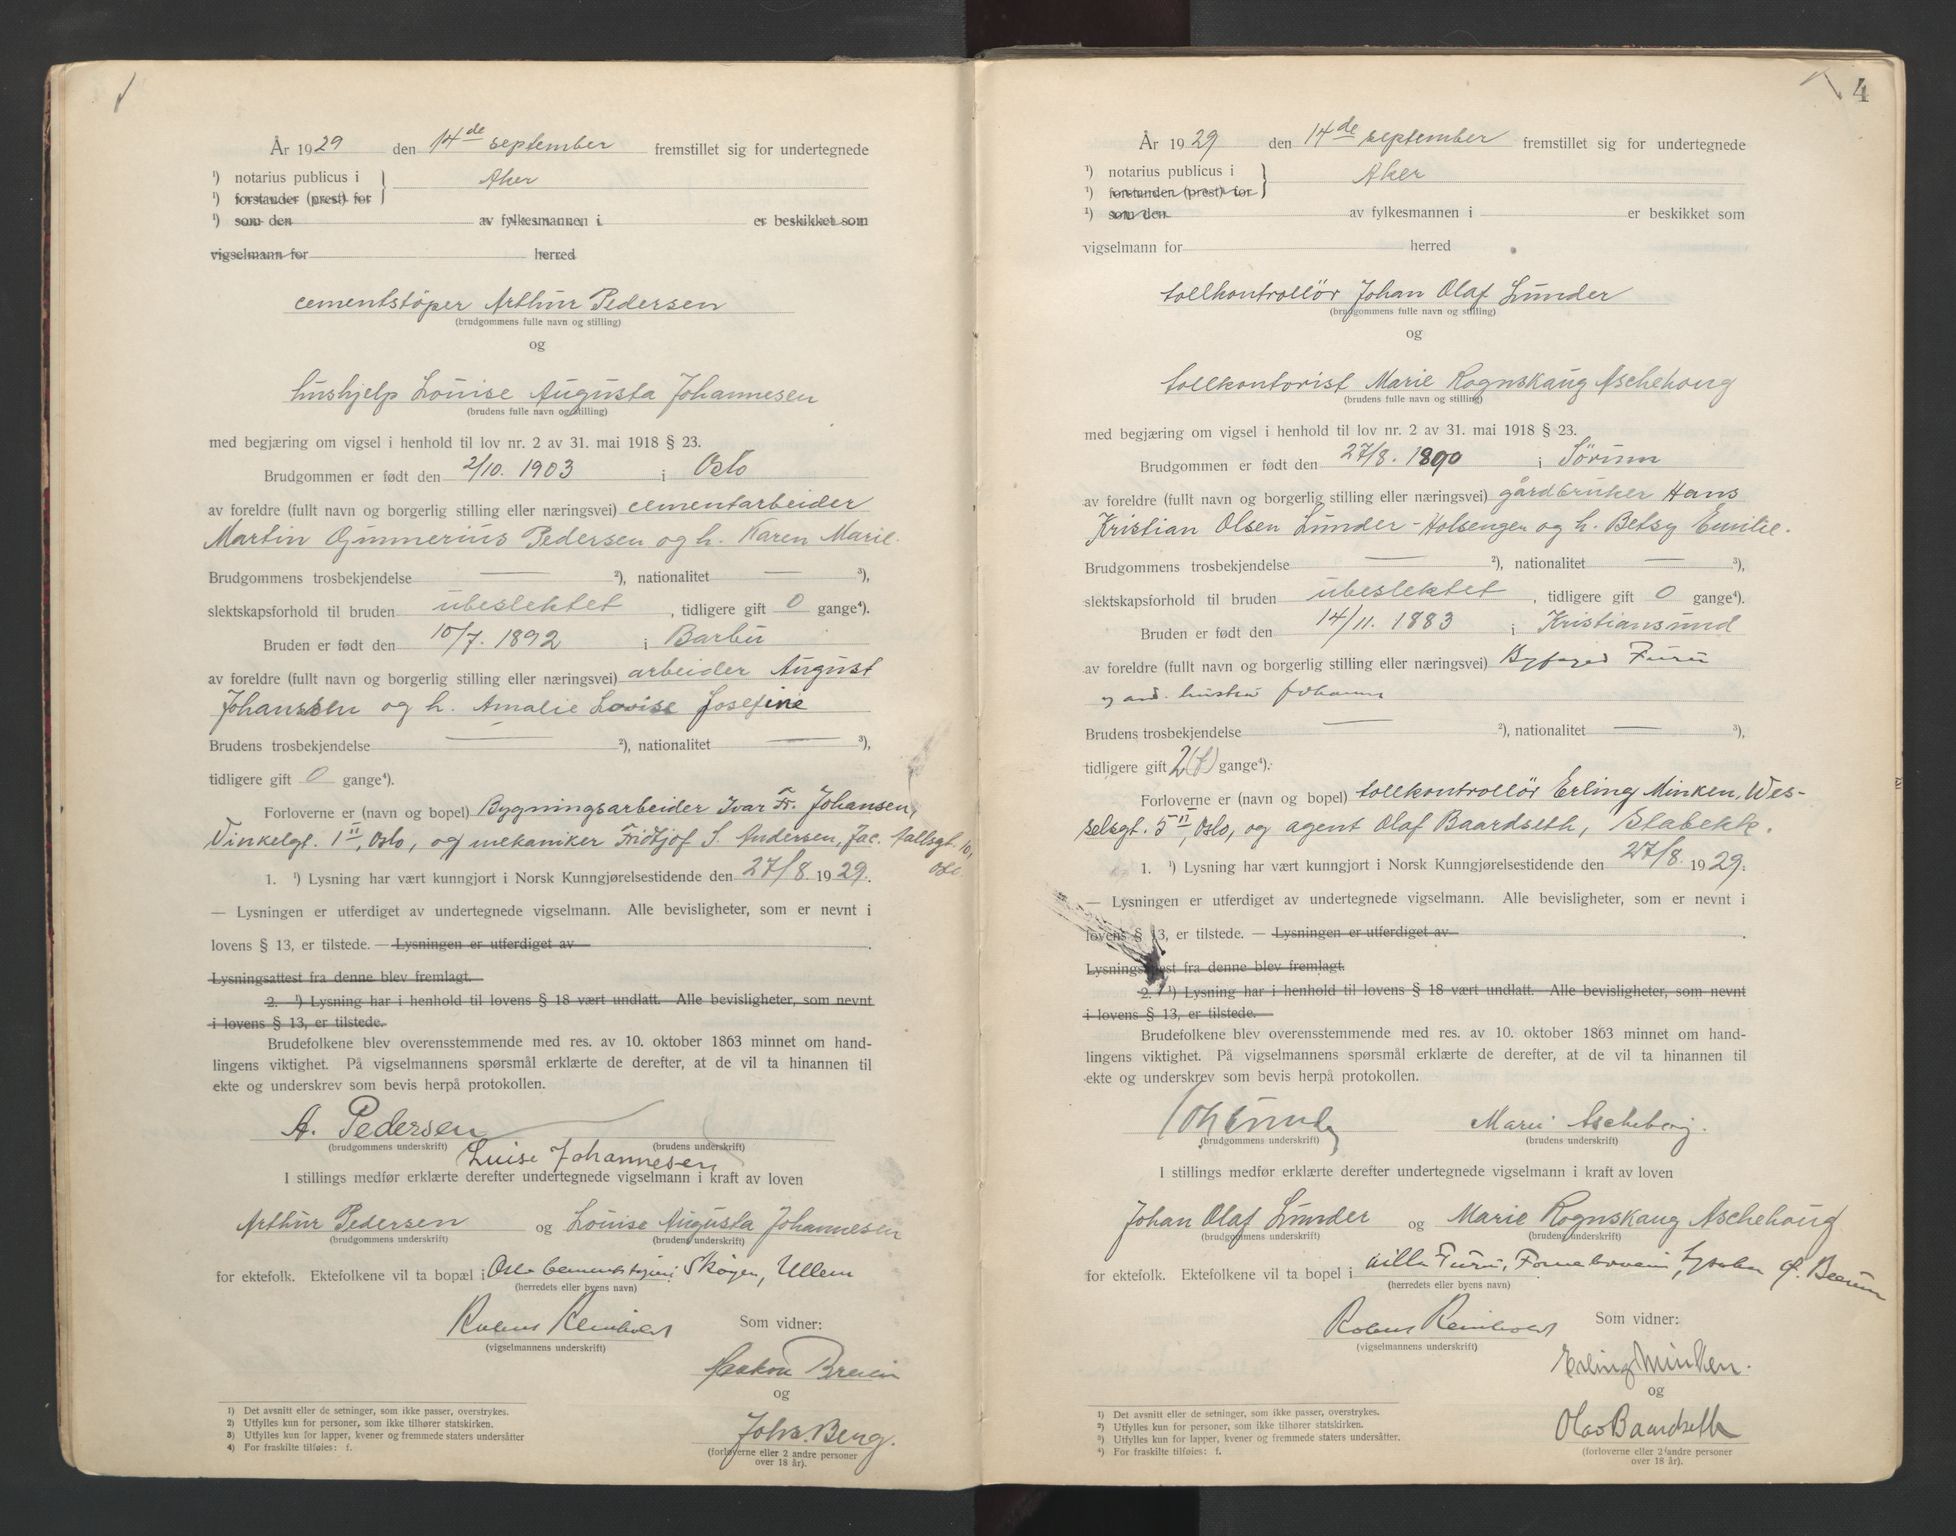 År 1929 den 14de september fremstillet sig for undertegnede
¹) notarius publicus i Aker
¹) forstander (prest) for
¹) som den av fylkesmannen i er beskikket som
vigselmann for herred
cementstöper Arthur Pedersen
(brudgommens fulle navn og stilling)
og
hushjelp Louise Augusta Johannesen
(brudens fulle navn og stilling)
med begjæring om vigsel i henhold til lov nr. 2 av 31. mai 1918 § 23.
Brudgommen er født den 2/10. 1903 i Oslo
av foreldre (fullt navn og borgerlig stilling eller næringsvei) cementarbeider
Martin Gunnerius Pedersen og h. Karen Marie.
Brudgommens trosbekjendelse — ²), nationalitet — ³),
slektskapsforhold til bruden ubeslektet, tidligere gift 0 gange⁴).
Bruden er født den 10/7. 1892 i Barbu
av foreldre (fullt navn og borgerlig stilling eller næringsvei) arbeider August
Johanssen og h. Amalie Lovise Josefine
Brudens trosbekjendelse — ²), nationalitet — ³),
tidligere gift 0 gange⁴).
Forloverne er (navn og bopel) Bygningsarbeider Ivar Fr. Johansen,
Vinkelgt. 1 II, Oslo, og mekaniker Fridtjof S. Andersen, Jac. Aallsgt. 10,
Oslo.
1. ¹) Lysning har vært kunngjort i Norsk Kunngjørelsestidende den 27/8. 1929.
— Lysningen er utferdiget av undertegnede vigselmann. Alle bevisligheter, som er nevnt i
lovens § 13, er tilstede. — Lysningen er utferdiget av
Lysningsattest fra denne blev fremlagt.
2. ¹) Lysning har i henhold til lovens § 18 vært undlatt. Alle bevisligheter, som nevnt
i lovens § 13, er tilstede.
Brudefolkene blev overensstemmende med res. av 10. oktober 1863 minnet om hand-
lingens viktighet. På vigselmannens spørsmål erklærte de derefter, at de vil ta hinannen til
ekte og underskrev som bevis herpå protokollen.
A. Pedersen
(brudgommens underskrift) (brudens underskrift)
Luise Johannesen
I stillings medfør erklærte derefter undertegnede vigselmann i kraft av loven
Arthur Pedersen og Louise Augusta Johannesen
(brudgommens underskrift) (brudens underskrift)
for ektefolk. Ektefolkene vil ta bopæl i Oslo Cementstøperi, Skøyen, Ullern
(herredets eller byens navn)
Rubens Reinholdt Som vidner:
(vigselmannens underskrift)
Haakon Breien
og
Johs. Berg.
(forloverne eller 2 andre personer
over 18 år).
1) Det avsnitt eller de setninger, som ikke passer, overstrykes.
2) Utfylles kun for personer, som ikke tilhører statskirken.
3) Utfylles kun for lapper, kvener og fremmede staters undersåtter
4) For fraskilte tilføies: f.
4
År 1929 den 14de september fremstillet sig for undertegnede
¹) notarius publicus i Aker
¹) forstanden (prest) for
¹) som den av fylkesmannen i er beskikket som
vigselmann for herred
tollkontrollör Johan Olaf Lunder
(brudgommens fulle navn og stilling)
og
tollkontorist Marie Rognskaug Aschehoug
(brudens fulle navn og stilling)
med begjæring om vigsel i henhold til lov nr. 2 av 31. mai 1918 § 23.
Brudgommen er født den 27/8. 1890 i Sörum
av foreldre (fullt navn og borgerlig stilling eller næringsvei) gårdbruker Hans
Kristian Olsen Lunder-Holsengen og h. Betsy Emilie.
Brudgommens trosbekjendelse — ²), nationalitet — ³),
slektskapsforhold til bruden ubeslektet, tidligere gift 0 gange⁴).
Bruden er født den 14/11. 1883 i Kristiansund
av foreldre (fullt navn og borgerlig stilling eller næringsvei) Byfoged Furu
og hustru Johanne
Brudens trosbekjendelse — ²), nationalitet — ³),
tidligere gift 2(f) gange⁴).
Forloverne er (navn og bopel) tollkontrollör Erling Minken, Wes-
selsgt. 5 II, Oslo, og agent Olaf Baardseth, Stabekk.
1. ¹) Lysning har vært kunngjort i Norsk Kunngjørelsestidende den 27/8. 1929.
— Lysningen er utferdiget av undertegnede vigselmann. Alle bevisligheter, som er nevnt i
lovens § 13, er tilstede. — Lysningen er utferdiget av
Lysningsattest fra denne blev fremlagt.
2. ¹) Lysning har i henhold til lovens § 18 vært undlatt. Alle bevisligheter, som nevnt
i lovens § 13, er tilstede.
Brudefolkene blev overensstemmende med res. av 10. oktober 1863 minnet om hand-
lingens viktighet. På vigselmannens spørsmål erklærte de derefter, at de vil ta hinannen til
ekte og underskrev som bevis herpå protokollen.
Joh Lunder Marie Aschehoug.
(brudgommens underskrift) (brudens underskrift)
I stillings medfør erklærte derefter undertegnede vigselmann i kraft av loven
Johan Olaf Lunder og Marie Rognskaug Aschehoug
(brudgommens underskrift) (brudens underskrift)
for ektefolk. Ektefolkene vil ta bopel i villa Furu, Fornebuveien, Lysaker, Ø. Bærum
(herredets eller byens navn)
Rubens Reinholdt Som vidner:
(vigselmannens underskrift)
Erling Minken.
og
Olav Baardseth
(forloverne eller 2 andre personer
over 18 år).
¹) Det avsnitt eller de setninger, som ikke passer, overstrykes.
²) Utfylles kun for personer, som ikke tilhører statskirken.
³) Utfylles kun for lapper, kvener og fremmede staters undersåtter.
⁴) For fraskilte tilføies: f.